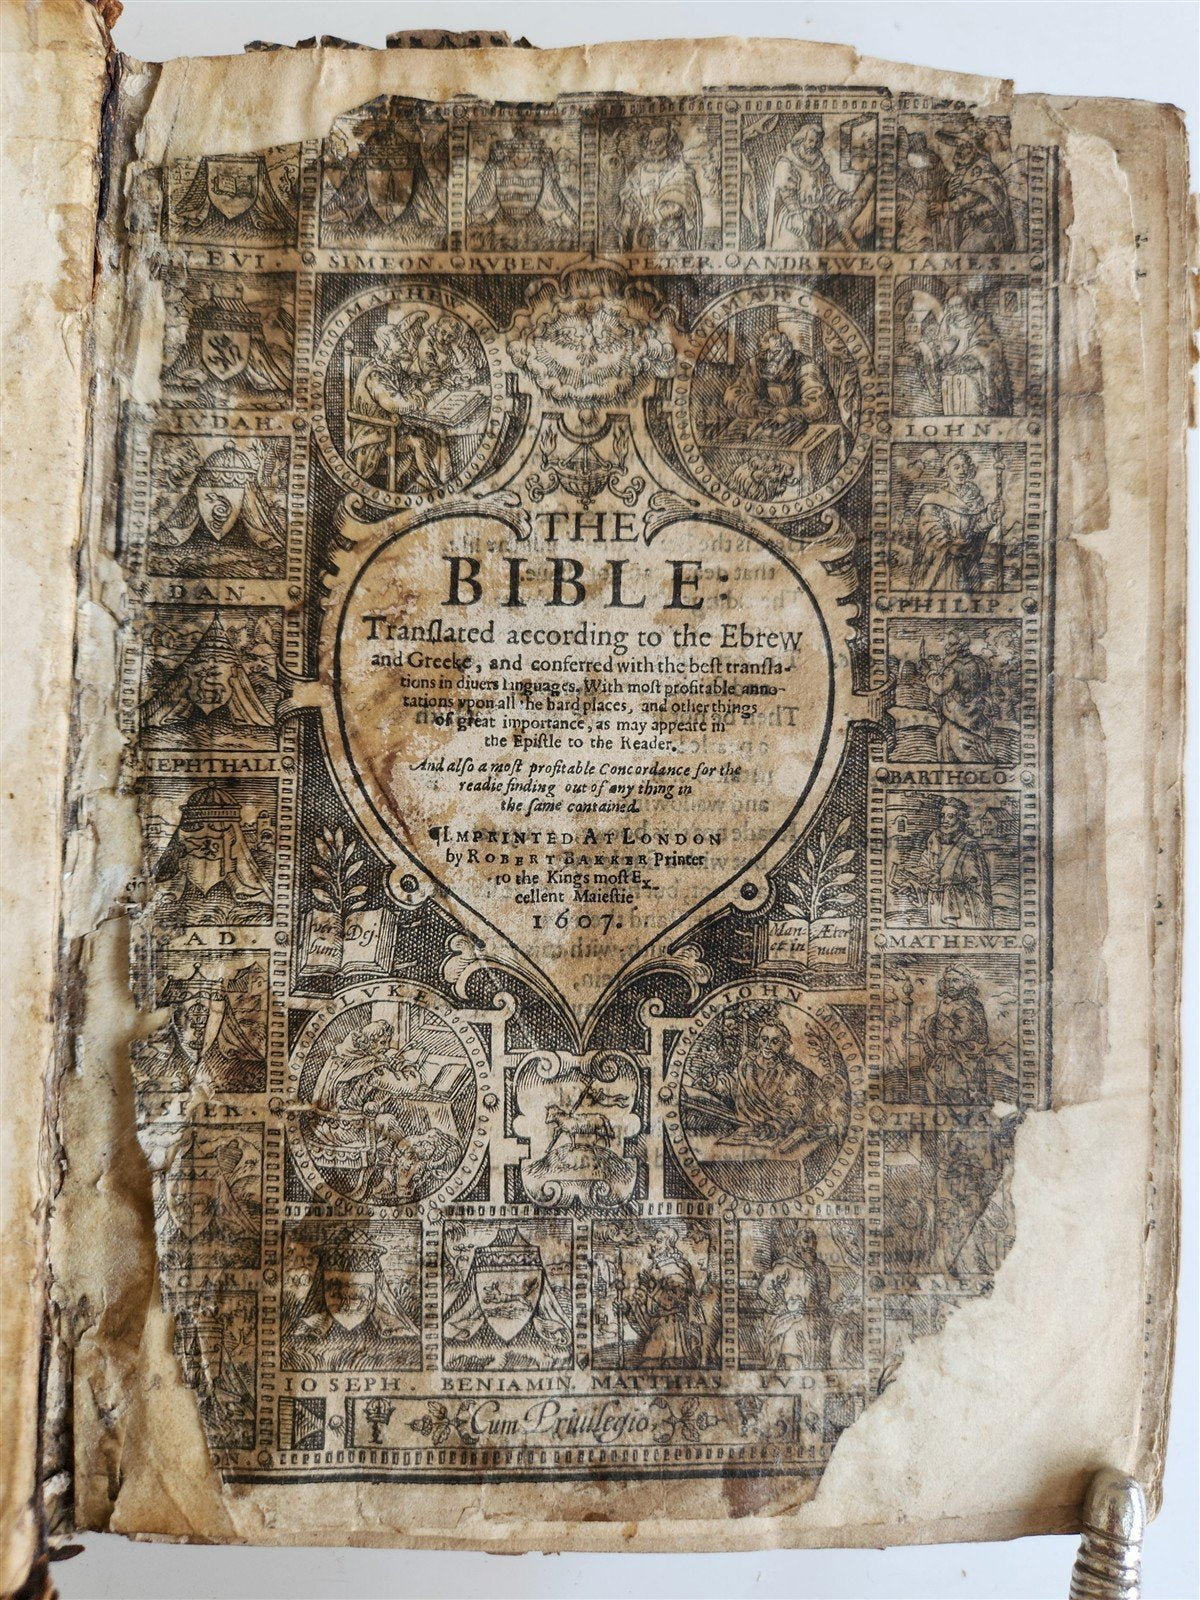 LEVI. SIMEON RVBEN. PETER. ANDREWE IAMES.
MATHEW. MARC
IVDAH. IOHN.
THE
BIBLE.
Tranſlated according to the Ebrew
and Greeke, and conferred with the beſt tranſla-
tions in diuers languages. With moſt profitable anno-
tations vpon all the hard places, and other things
of great importance, as may appeare in
the Epiſtle to the Reader.
And alſo a moſt profitable Concordance for the
readie finding out of any thing in
the ſame contained.
¶IMPRINTED AT LONDON
by ROBERT BARKER Printer
to the Kings moſt Ex-
cellent Maieſtie
1607.
DAN. PHILIP.
NEPHTHALI. BARTHOLO:
AD. MATHEWE.
Ver- Dej
bum Man- Æter
et in num
LVKE. IOHN
SHER. THOMA
IAMES
IOSEPH. BENIAMIN. MATTHIAS. IVDE
Cum Priuilegio
ON.